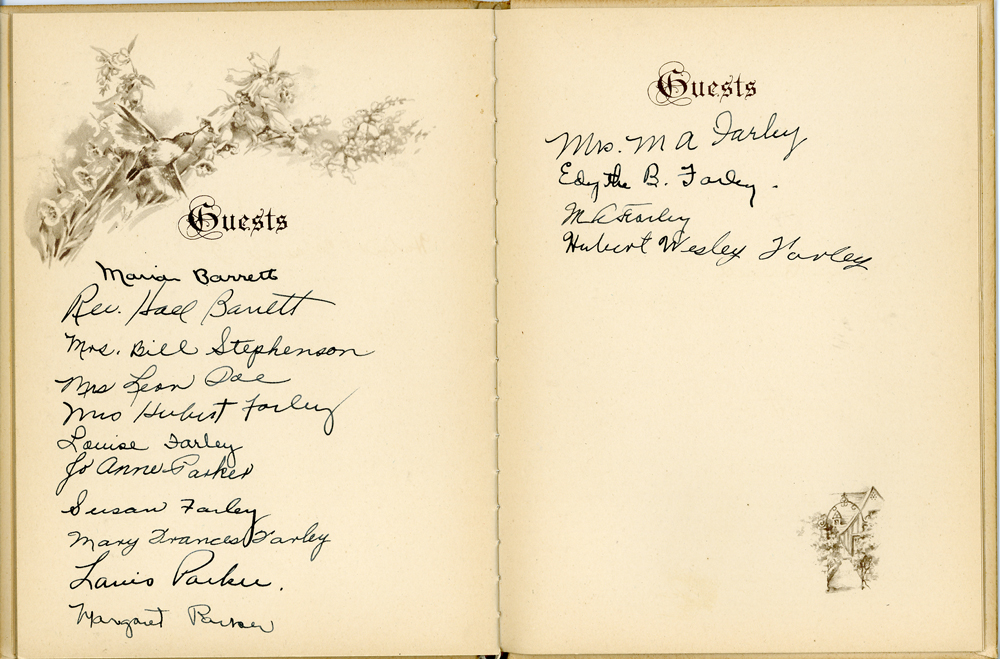 Guests
Marian Barrett
Rev. Hall Barrett
Mrs. Bill Stephenson
Mrs Leon
Mrs Hubert Farley
Louise Farley
Jo Anne Parker
Susan Farley
Mary Frances Farley
Parker.
Margaret Parker
Guests
Mrs. M A Farley
Edythe B. Farley.
M A Farley
Hubert Wesley Farley